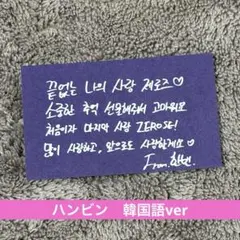 끝없는 나의 사랑 제로즈♡
소중한 추억 선물해줘서 고마워요
처음이자 마지막 사랑 ZEROSE!
많이 사랑하고, 앞으로도 사랑할게요♡
From. 한빈.
ハンビン 韓国語ver